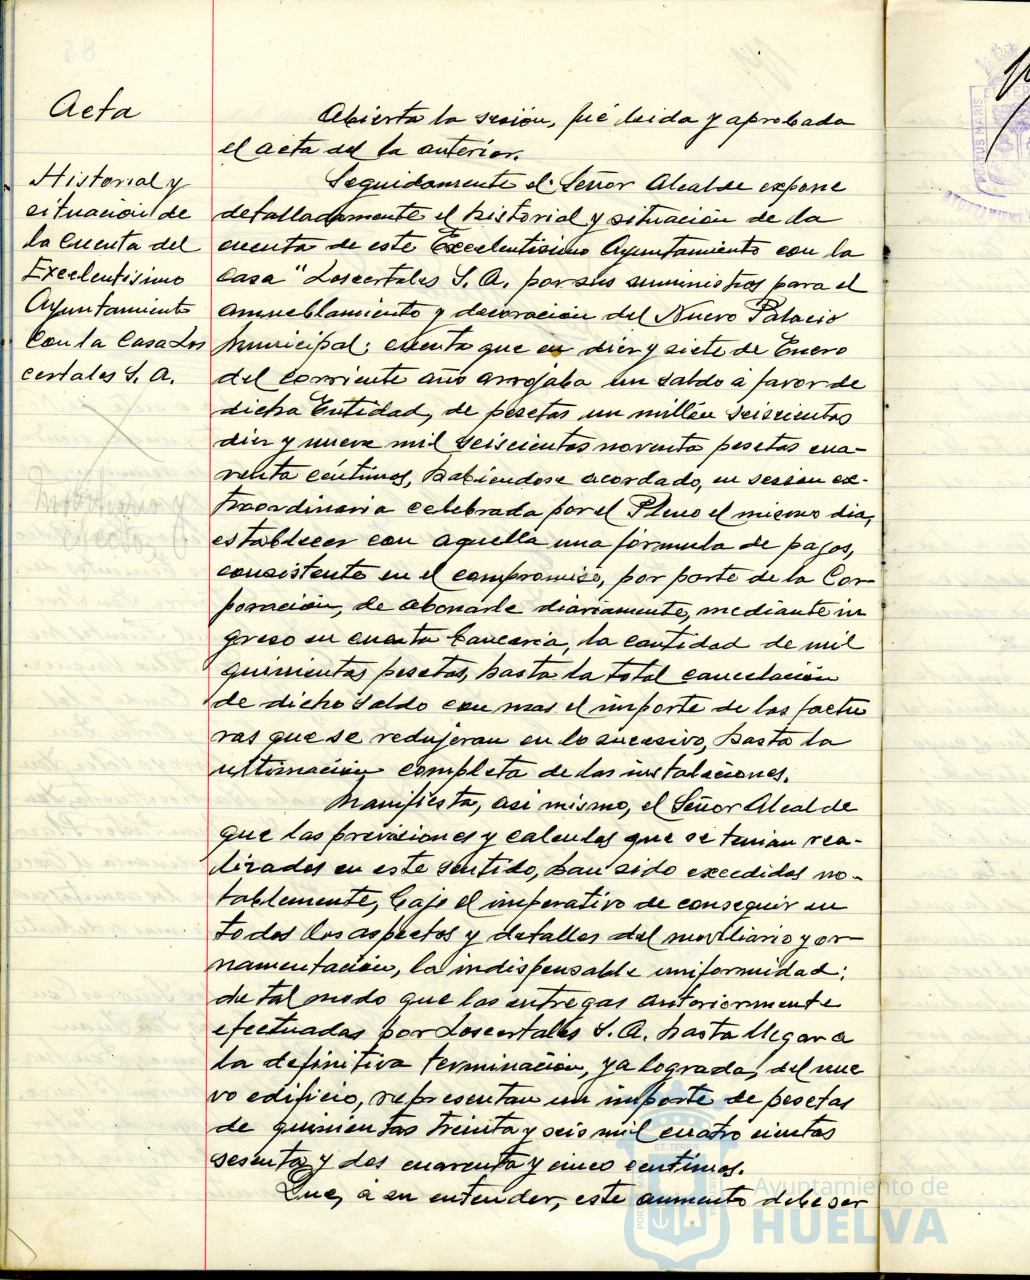 Acta
Historial y
situación de
la cuenta del
Excelentísimo
Ayuntamiento
con la Casa Los
certales S. A.
Abierta la sesión, fué leida y aprobada
el acta del la anterior.
Seguidamente el Señor Alcalde expone
detalladamente el historial y situación de la
cuenta de este Excelentísimo Ayuntamiento con la
casa "Loscertales S. A. por sus suministros para el
amueblamiento y decoración del Nuevo Palacio
Municipal; cuenta que en diez y siete de Enero
del corriente año arrojaba un saldo á favor de
dicha Entidad, de pesetas un millón seiscientas
diez y nueve mil seiscientas noventa pesetas cua-
renta céntimos, habiéndose acordado, en sesion ex-
traordinaria celebrada por el Pleno el mismo dia,
establecer con aquella una fórmula de pagos,
consistente en el compromiso, por parte de la Cor-
poración, de abonarle diariamente, mediante in
greso en cuenta bancaria, la cantidad de mil
quinientas pesetas, hasta la total cancelación
de dicho saldo con mas el importe de las factu
ras que se redujeran en lo sucesivo, hasta la
ultimación completa de las instalaciones.
Manifiesta, asi mismo, el Señor Alcalde
que las previsiones y calculos que se tenian rea-
lizados en este sentido, han sido excedidos no-
tablemente, bajo el imperativo de conseguir en
todos los aspectos y detalles del moviliario y or-
namentación, la indispensable uniformidad;
de tal modo que las entregas anteriormente
efectuadas por Loscertales S. A. hasta llegar a
la definitiva terminación, ya lograda, del nue
vo edificio, representan un importe de pesetas
de quinientas treinta y seis mil cuatro cientas
sesenta y dos cuarenta y cinco centimos.
Que, á su entender, este aumento debe ser
Ayuntamiento de
HUELVA